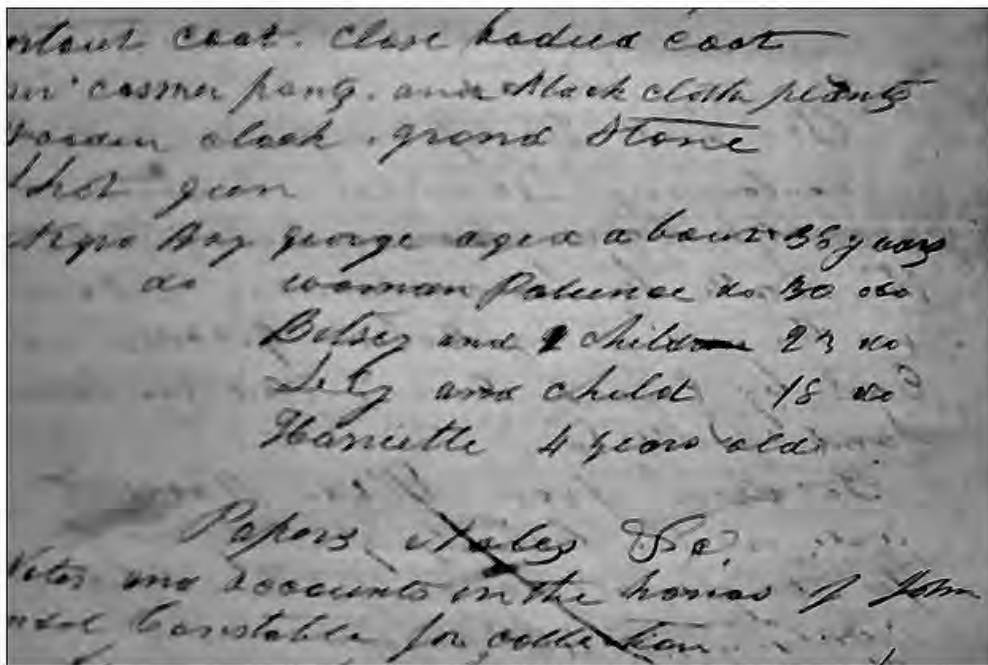 coat. close bodied coat
casmer pants. and black cloth peants
clock. grond Stone
Shot gun
Negro Boy george aged about 35 years
do woman Patience do. 30 do.
Betsey and 1 child 23 do
Lily and child 18 do
Harriette 4 years old
Papers Notes &c.
Notes and accounts in the hands of John
Constable for collection